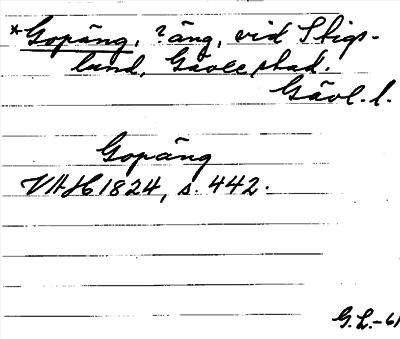 *Gopäng, ?äng, vid Stigs-
lund, Gävle stad.
Gävl. l.
Gopäng
VHAH 1824, s. 442.
G.L.-61